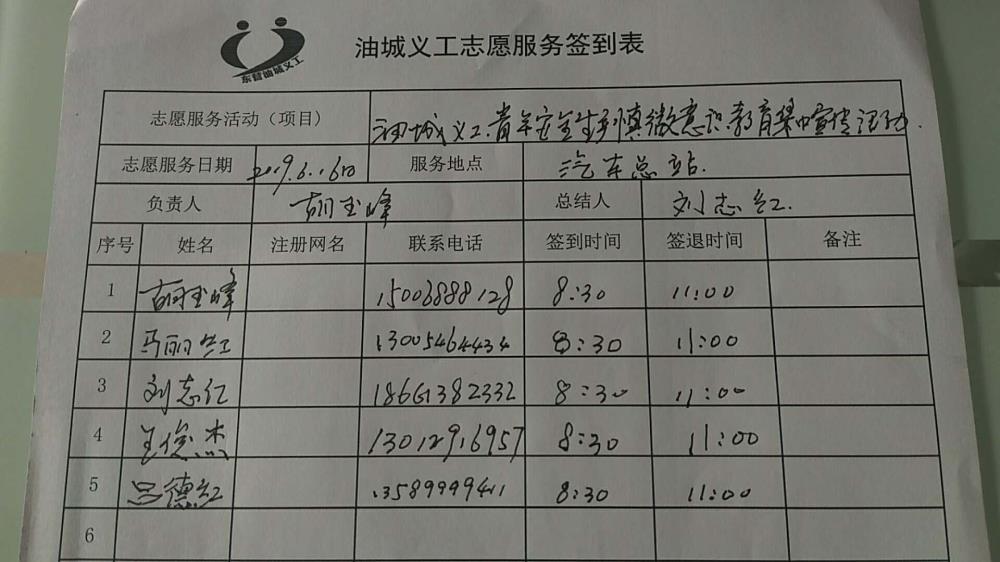 东营油城义工
油城义工志愿服务签到表
志愿服务活动（项目） 油城义工.青年安全生产慎微意识教育集中宣传活动
志愿服务日期 2019.6.16日 服务地点 汽车总站.
负责人 胡玉峰 总结人 刘志红.
序号 姓名 注册网名 联系电话 签到时间 签退时间 备注
1 胡玉峰 15006888128 8:30 11:00
2 马丽 13005464434 8:30 11:00
3 刘志红 18661382332 8:30 11:00
4 王俊杰 13012916957 8:30 11:00
5 吕德红 13589999411 8:30 11:00
6